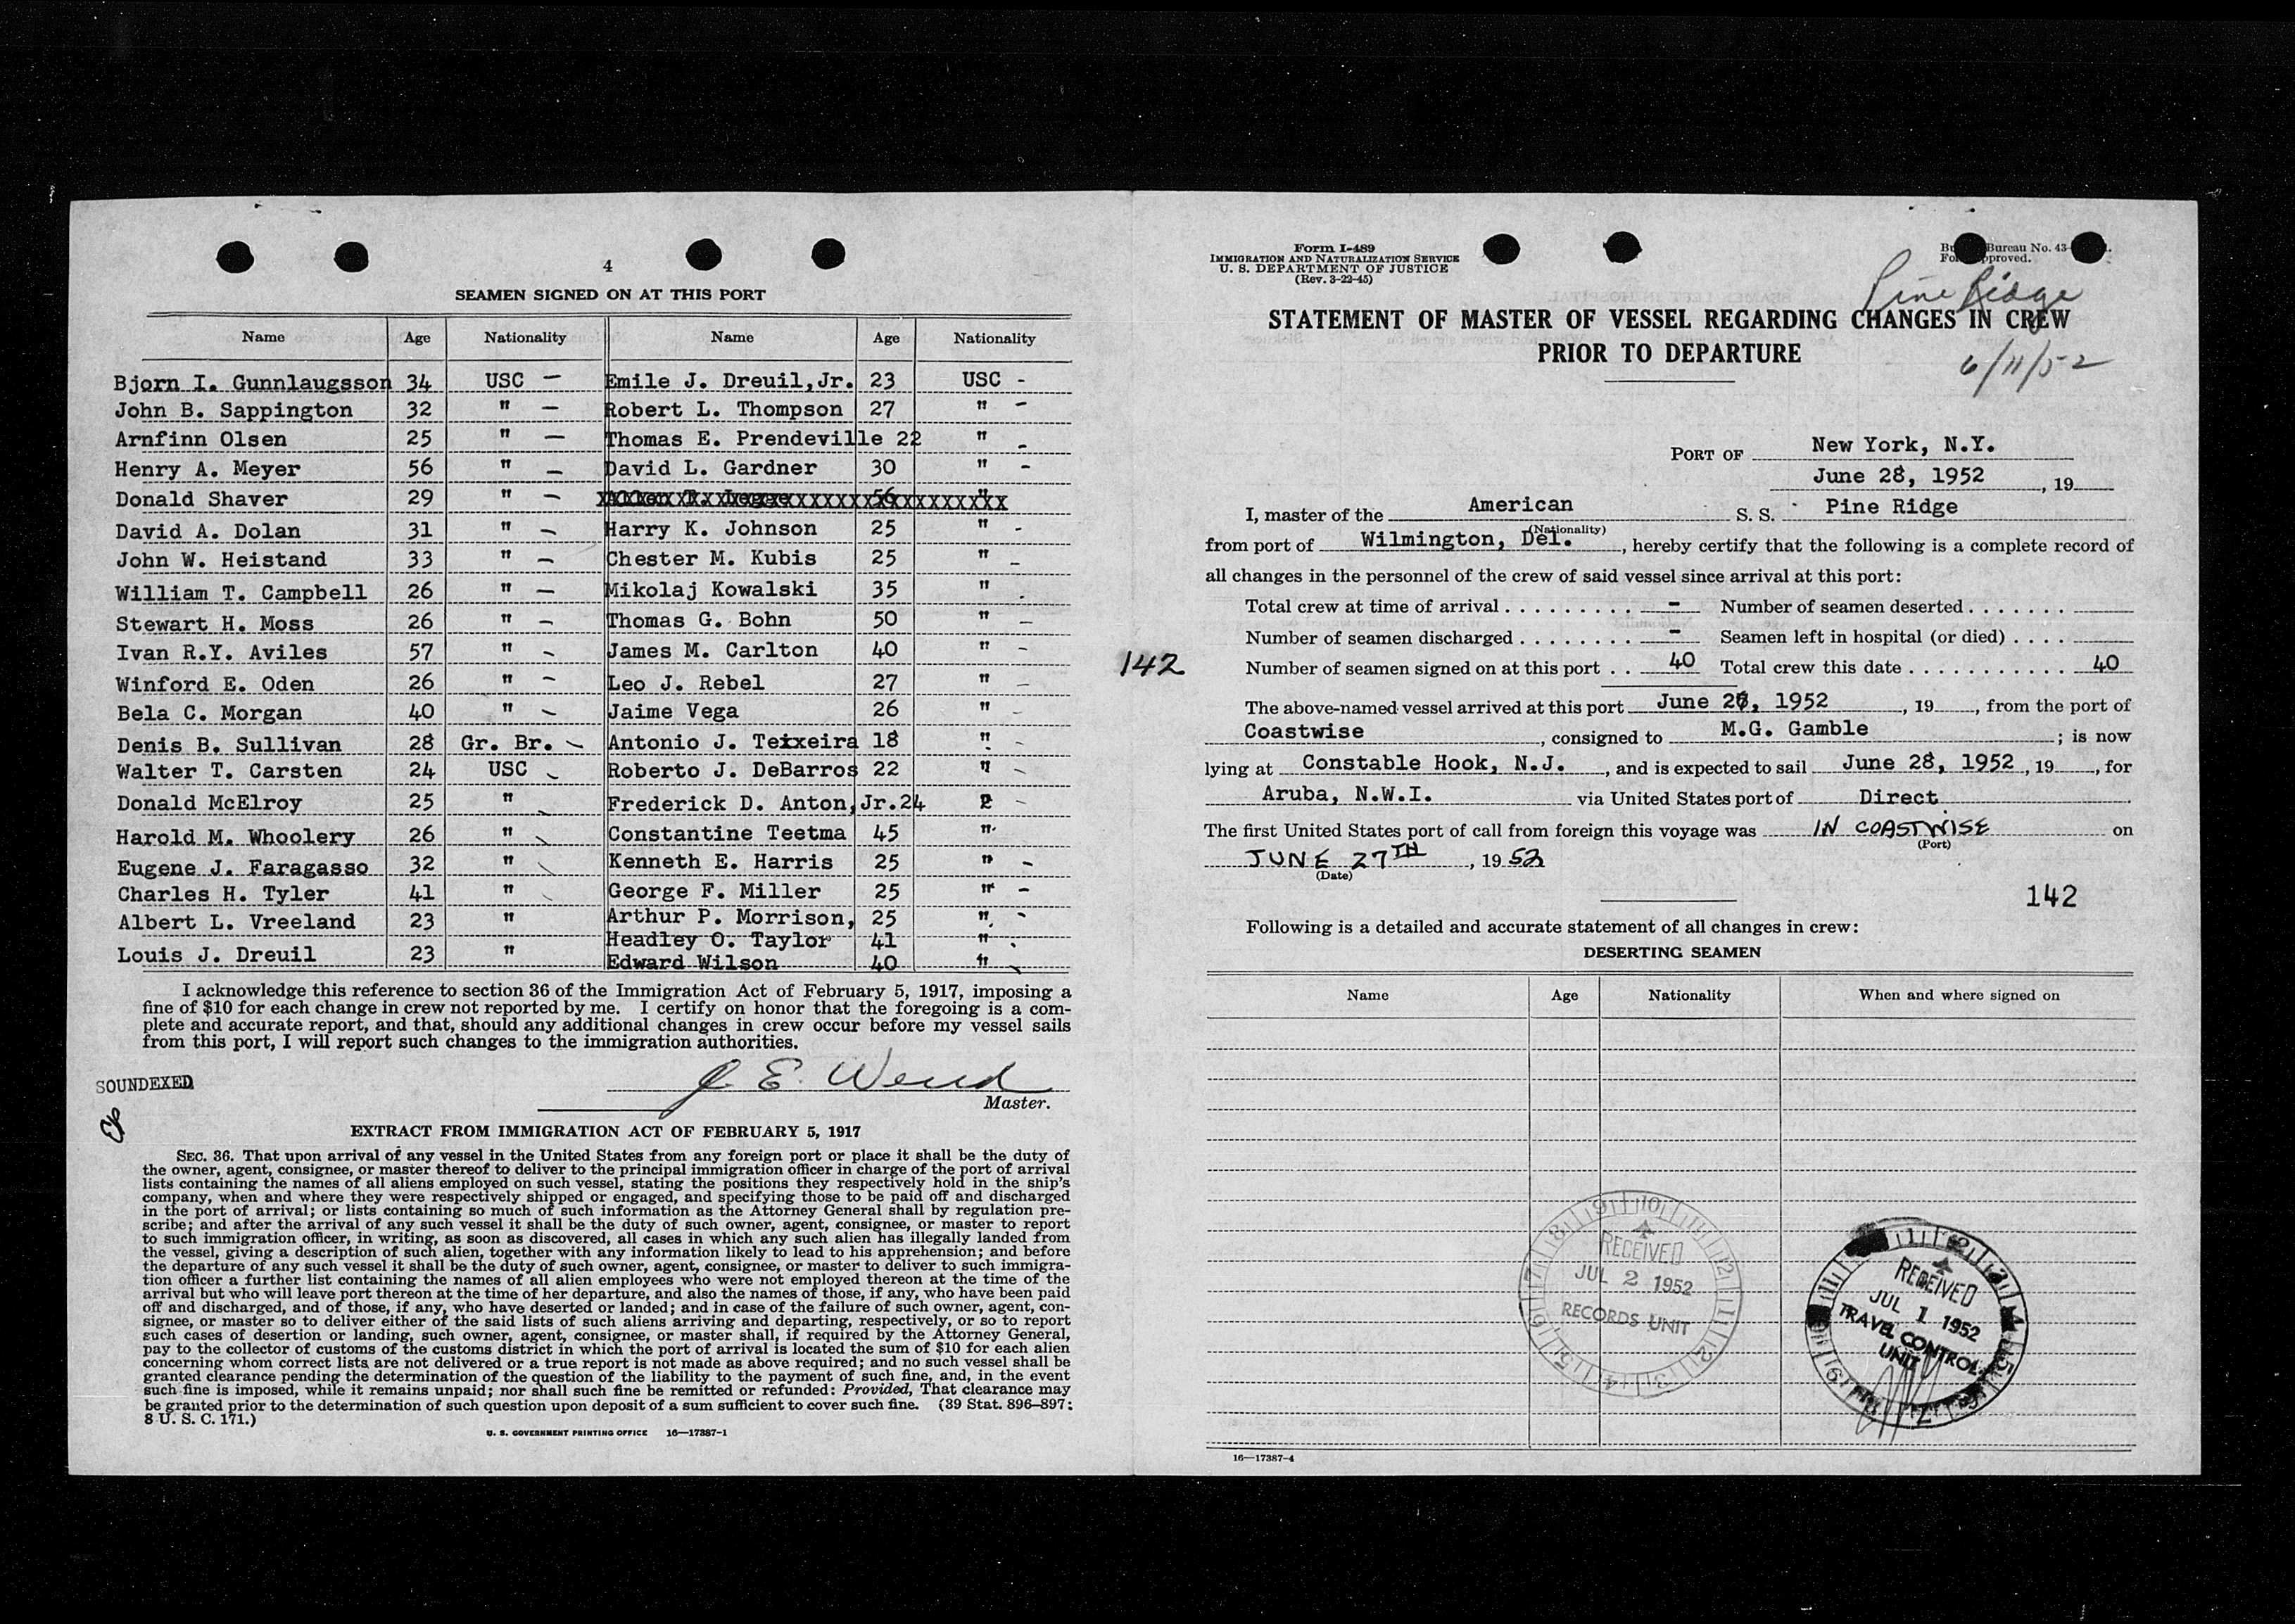 4
SEAMEN SIGNED ON AT THIS PORT
Name Age Nationality Name Age Nationality
Bjorn I. Gunnlaugsson 34 USC — Emile J. Dreuil,Jr. 23 USC -
John B. Sappington 32 " — Robert L. Thompson 27 " -
Arnfinn Olsen 25 " — Thomas E. Prendeville 22 " -
Henry A. Meyer 56 " — David L. Gardner 30 " -
Donald Shaver 29 " — 56 "
David A. Dolan 31 " — Harry K. Johnson 25 " -
John W. Heistand 33 " — Chester M. Kubis 25 " -
William T. Campbell 26 " — Mikolaj Kowalski 35 " -
Stewart H. Moss 26 " — Thomas G. Bohn 50 " -
Ivan R.Y. Aviles 57 " - James M. Carlton 40 " -
Winford E. Oden 26 " - Leo J. Rebel 27 " -
Bela C. Morgan 40 " - Jaime Vega 26 " -
Denis B. Sullivan 28 Gr. Br. - Antonio J. Teixeira 18 " -
Walter T. Carsten 24 USC - Roberto J. DeBarros 22 " -
Donald McElroy 25 " - Frederick D. Anton,Jr.24 -
Harold M. Whoolery 26 " - Constantine Teetma 45 "
Eugene J. Faragasso 32 " - Kenneth E. Harris 25 " -
Charles H. Tyler 41 " - George F. Miller 25 " -
Albert L. Vreeland 23 " Arthur P. Morrison, 25 " -
Headley O. Taylor 41 " -
Louis J. Dreuil 23 " Edward Wilson 40 " -
I acknowledge this reference to section 36 of the Immigration Act of February 5, 1917, imposing a
fine of $10 for each change in crew not reported by me. I certify on honor that the foregoing is a com-
plete and accurate report, and that, should any additional changes in crew occur before my vessel sails
from this port, I will report such changes to the immigration authorities.
SOUNDEXED
J. E. Wend
Master.
EXTRACT FROM IMMIGRATION ACT OF FEBRUARY 5, 1917
SEC. 36. That upon arrival of any vessel in the United States from any foreign port or place it shall be the duty of
the owner, agent, consignee, or master thereof to deliver to the principal immigration officer in charge of the port of arrival
lists containing the names of all aliens employed on such vessel, stating the positions they respectively hold in the ship's
company, when and where they were respectively shipped or engaged, and specifying those to be paid off and discharged
in the port of arrival; or lists containing so much of such information as the Attorney General shall by regulation pre-
scribe; and after the arrival of any such vessel it shall be the duty of such owner, agent, consignee, or master to report
to such immigration officer, in writing, as soon as discovered, all cases in which any such alien has illegally landed from
the vessel, giving a description of such alien, together with any information likely to lead to his apprehension; and before
the departure of any such vessel it shall be the duty of such owner, agent, consignee, or master to deliver to such immigra-
tion officer a further list containing the names of all alien employees who were not employed thereon at the time of the
arrival but who will leave port thereon at the time of her departure, and also the names of those, if any, who have been paid
off and discharged, and of those, if any, who have deserted or landed; and in case of the failure of such owner, agent, con-
signee, or master so to deliver either of the said lists of such aliens arriving and departing, respectively, or so to report
such cases of desertion or landing, such owner, agent, consignee, or master shall, if required by the Attorney General,
pay to the collector of customs of the customs district in which the port of arrival is located the sum of $10 for each alien
concerning whom correct lists are not delivered or a true report is not made as above required; and no such vessel shall be
granted clearance pending the determination of the question of the liability to the payment of such fine, and, in the event
such fine is imposed, while it remains unpaid; nor shall such fine be remitted or refunded: Provided, That clearance may
be granted prior to the determination of such question upon deposit of a sum sufficient to cover such fine. (39 Stat. 896–897;
8 U. S. C. 171.)
U. S. GOVERNMENT PRINTING OFFICE 16—17387-1
Form I-489
IMMIGRATION AND NATURALIZATION SERVICE
U. S. DEPARTMENT OF JUSTICE
(Rev. 3-22-45)
Bureau No. 43-
Pine Ridge
STATEMENT OF MASTER OF VESSEL REGARDING CHANGES IN CREW
PRIOR TO DEPARTURE
6/11/52
PORT OF New York, N.Y.
June 28, 1952, 19
I, master of the American S. S. Pine Ridge
(Nationality)
from port of Wilmington, Del., hereby certify that the following is a complete record of
all changes in the personnel of the crew of said vessel since arrival at this port:
Total crew at time of arrival . . . . . . . . . - Number of seamen deserted . . . . . . .
Number of seamen discharged . . . . . . . . - Seamen left in hospital (or died) . . . .
142 Number of seamen signed on at this port . . 40 Total crew this date . . . . . . . . . . . . 40
The above-named vessel arrived at this port June 2, 1952, 19, from the port of
Coastwise, consigned to M.G. Gamble; is now
lying at Constable Hook, N.J., and is expected to sail June 28, 1952, 19, for
Aruba, N.W.I. via United States port of Direct.
The first United States port of call from foreign this voyage was IN COASTWISE on
(Port)
JUNE 27TH, 1952
(Date)
142
Following is a detailed and accurate statement of all changes in crew:
DESERTING SEAMEN
Name Age Nationality When and where signed on
RECEIVED
JUL 2 1952
RECORDS UNIT
RECEIVED
JUL 1 1952
TRAVEL CONTROL
UNIT
16—17387-4